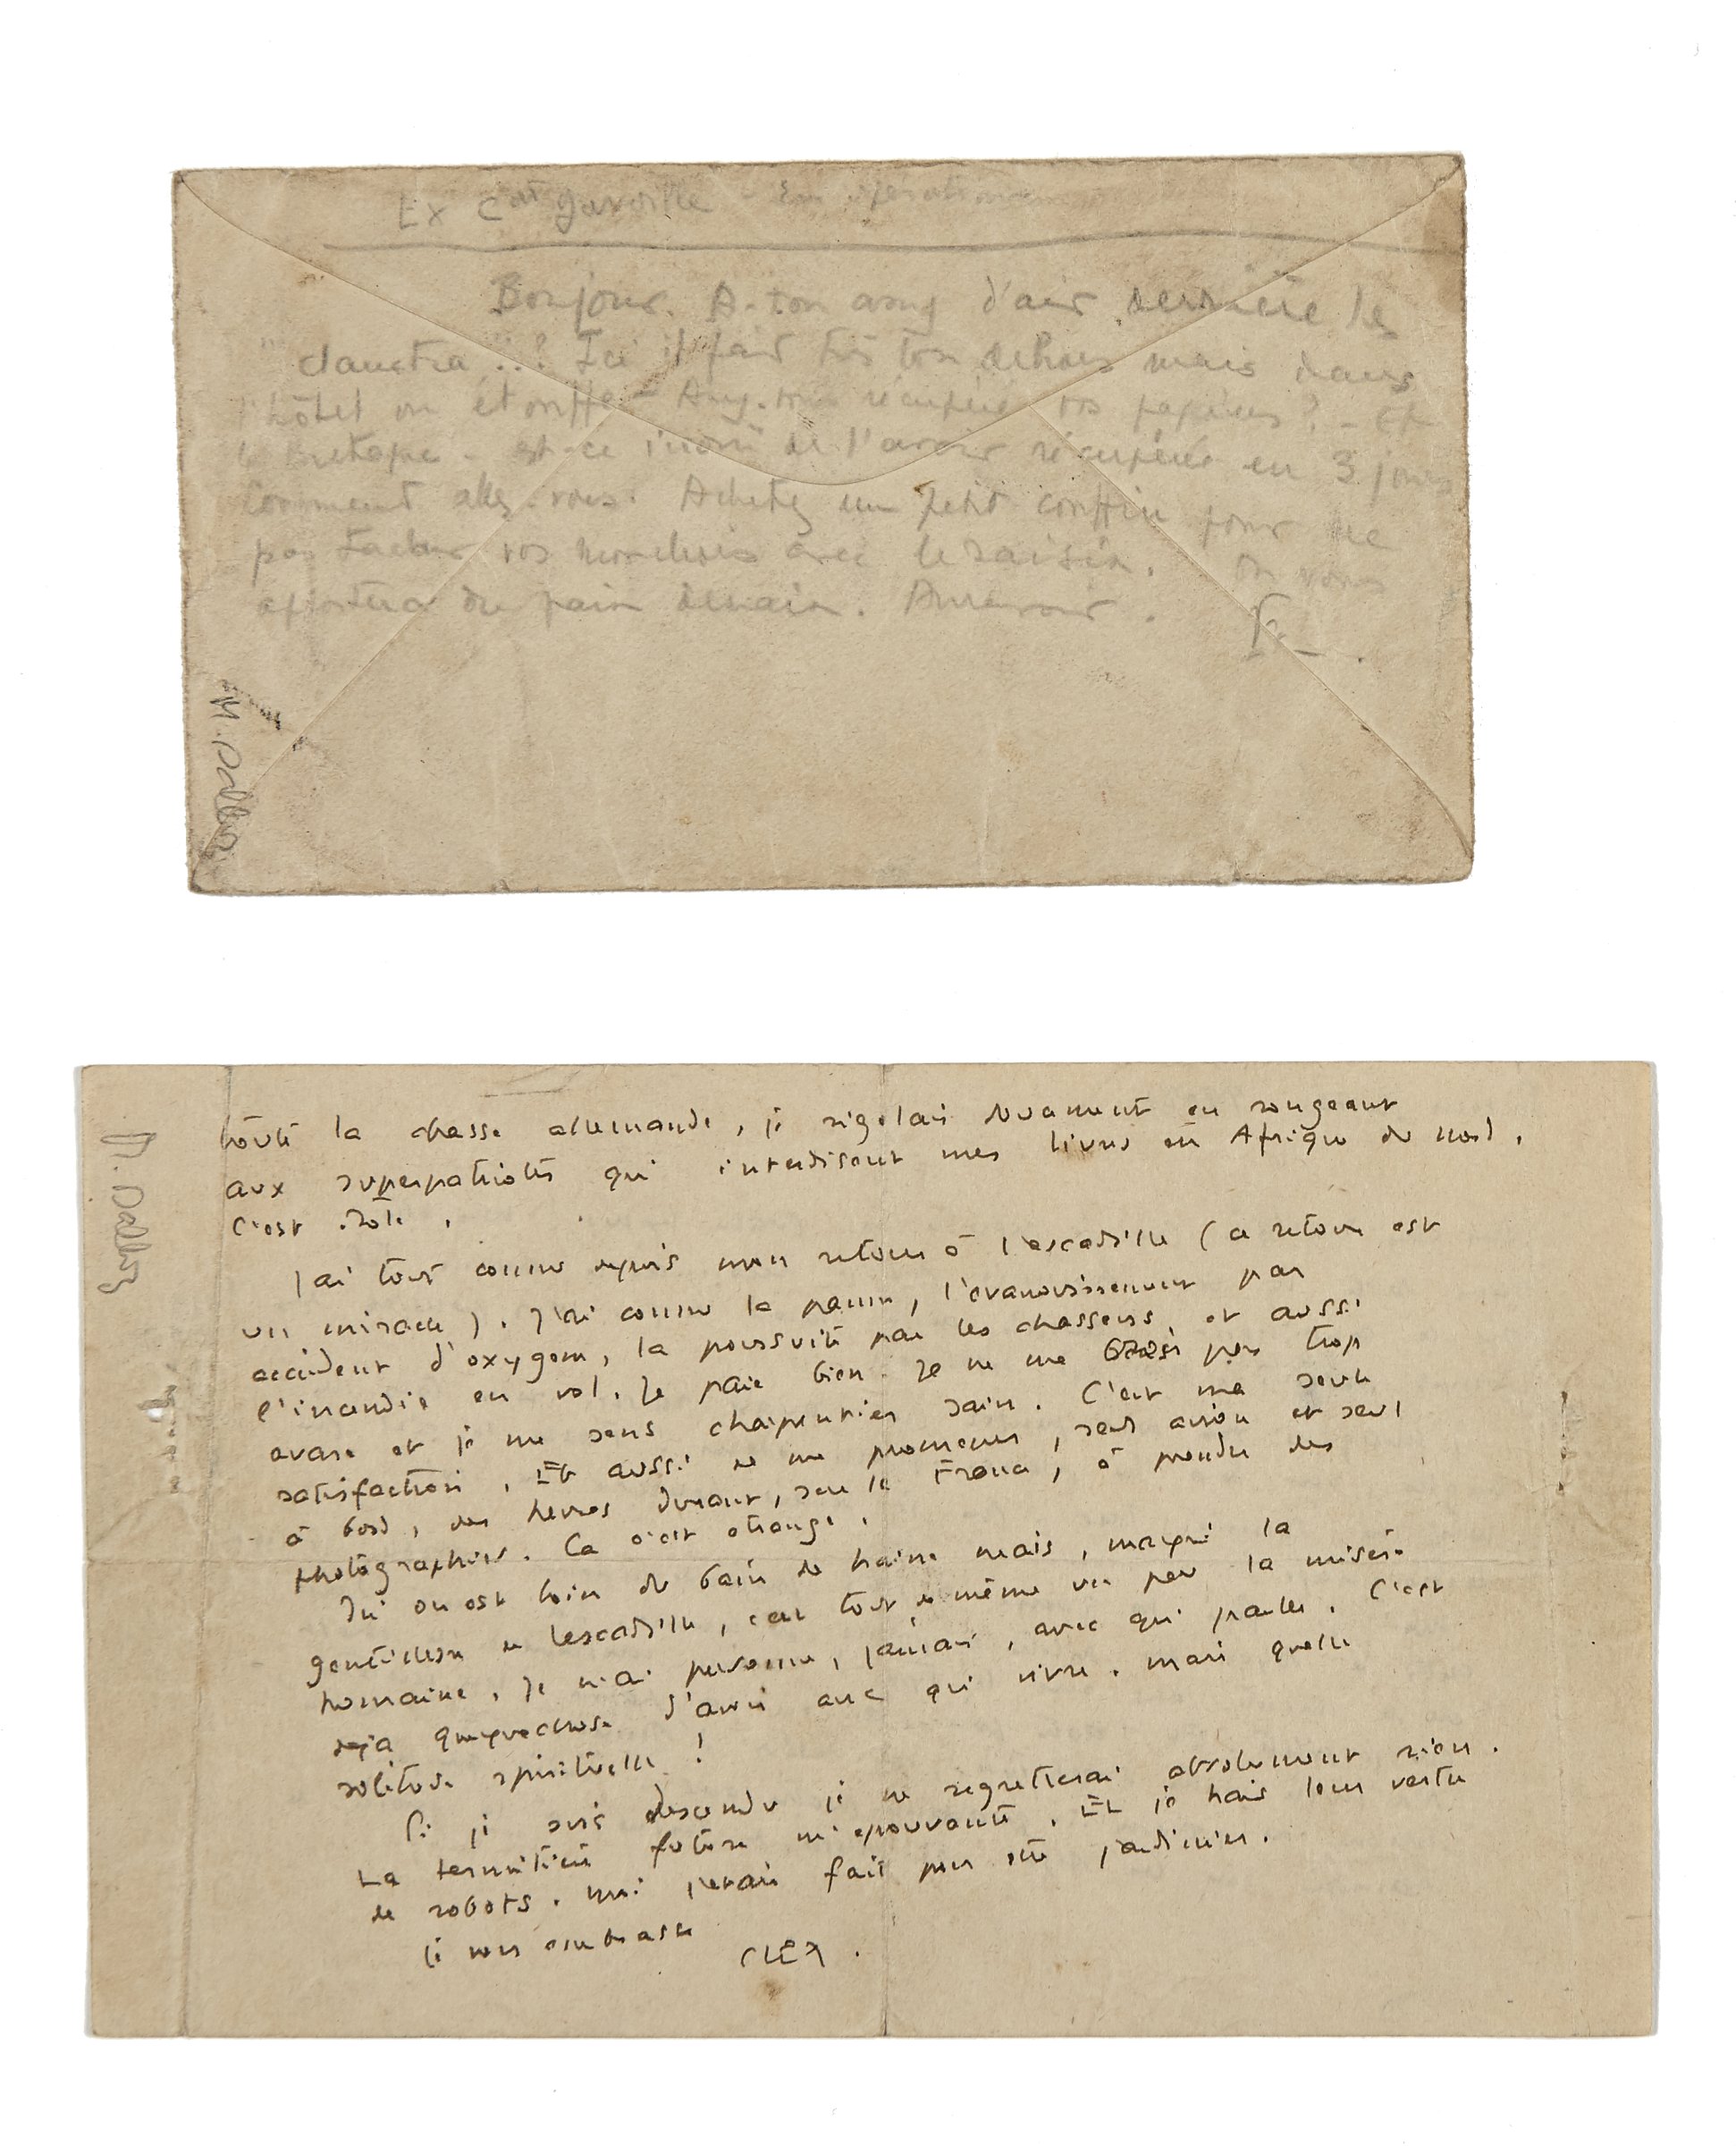 Ex Cdt Gavoille - En opérations
Bonjour. A-t-on assez d'air derrière les
claustra..? Ici il fait très bon dehors mais dans
l'hôtel on étouffe - Avez-vous récupéré vos papiers ? - Et
- est-ce inouï de l'avoir récupérée en 3 jours
Comment allez-vous. Achetez un petit couffin pour ne
pas tacher vos mouchoirs avec le raisin. On vous
apportera du pain demain. Aurevoir.
M. Dalloz
toute la chasse allemande, je rigolais doucement en songeant
aux superpatriotes qui interdisent mes livres en Afrique du nord.
C'est drôle.
J'ai tout connu depuis mon retour à l'escadrille (ce retour est
un miracle). J'ai connu la panne, l'évanouissement par
accident d'oxygène, la poursuite par les chasseurs, et aussi
l'incendie en vol. Je paie bien. Je ne me crois pas trop
avare et je me sens charpentier sain. C'est ma seule
satisfaction. Et aussi de me promener, seul avion et seul
à bord, des heures durant, sur la France, à prendre des
photographies. Ca c'est étrange.
Ici on est loin du bain de haine mais, malgré la
gentillesse de l'escadrille, c'est tout de même un peu la misère
humaine. Je n'ai personne, jamais, avec qui parler. C'est
déjà quelquechose d'avoir avec qui vivre. Mais quelle
solitude spirituelle !
Si je suis descendu je ne regretterai absolument rien.
La termitière future m'épouvante. Et je hais leur vertu
de robots. Moi j'étais fait pour être jardinier.
Je vous embrasse
M. Dalloz